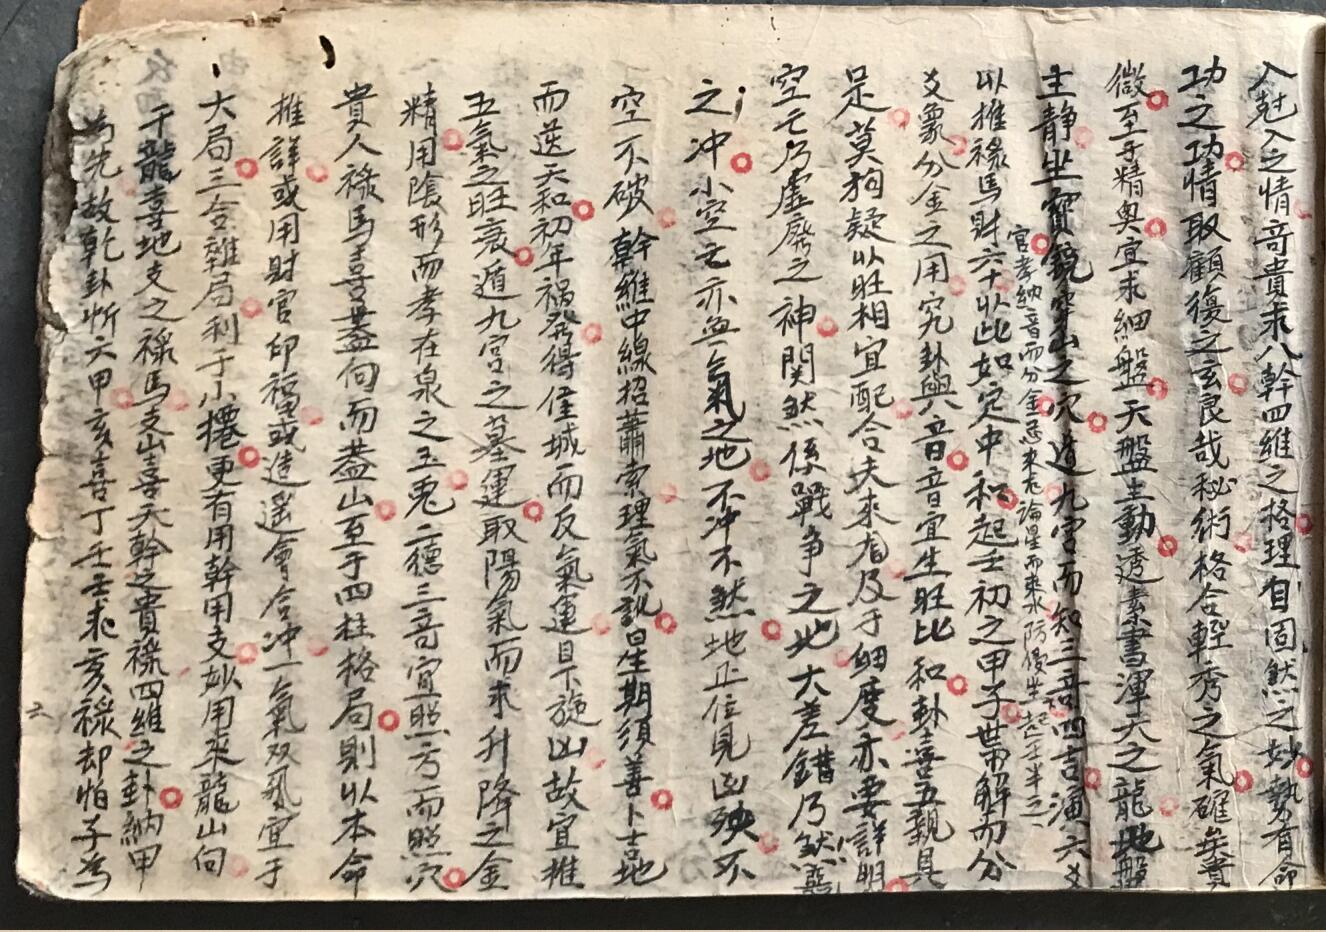 入尅入之情奇貴求八幹四維之格理自固然之妙勢有命
功之功情取顧復之玄良哉秘術格合輕秀之氣確矣書
微至于精奥宜求細盤天盤主動透素書渾天之龍地盤
主静坐寶鏡穿山之穴遁九宮而知三奇四吉演六爻
官孝納音而分金忌來尤論星而來水防侵坐起壬半之
以推祿馬財六十以此如定中和起壬初之甲子世界解而分
爻象分金之用究卦與八音音宜生旺比和卦喜五親具
足莫狗疑以旺相宜配合夫來有及于細度亦要詳明
空亡乃虛廢之神関然係戰争之地大差錯乃然
之冲小空亡亦無氣之地不冲不然地正位見凶殃不
空不破幹維中線招蕭索理氣不説日生期須善卜吉地
而送天和初年禍發得佳城而反氣運且下施凶故宜推
五氣之旺衰遁九宮之墓運取陽氣而求升降之金
精用隂形而孝在泉之玉兎二德三奇宜照方而照穴
貴人祿馬喜盖向而盖山至于四柱格局則以本命
推詳或用財官印福或造遥會合冲一氣双氣宜于
大局三合雜局利于小捲更有用幹用支妙用來龍山向
干龍喜地支之祿馬支山喜天幹之貴祿四維之卦納甲
為先故乾卦忻六甲亥喜丁壬壬求亥祿却怕子為
六